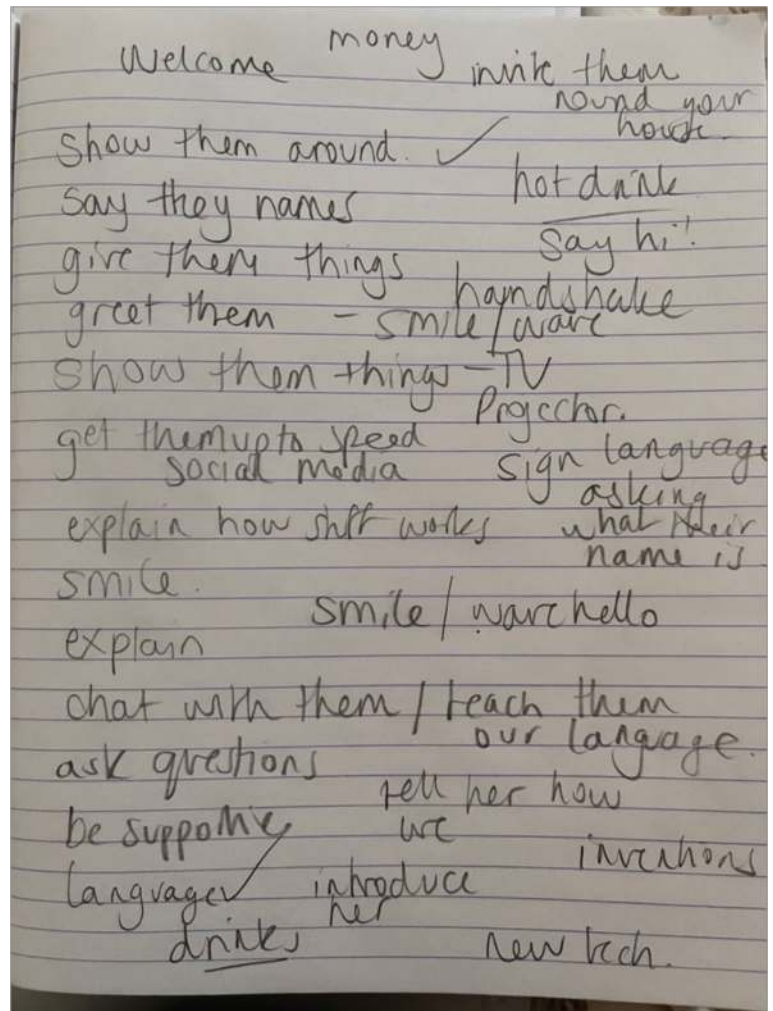 money
Welcome invite them
round your
house.
show them around. ✓
hot drink
say they names
say hi!
give them things
handshake
greet them - smile/wave
show them things - TV
Projector.
get them up to speed
social media sign language
asking
explain how stuff works what their
name is
smile.
smile/wave hello
explain
chat with them / teach them
our language.
ask questions
tell her how
be supportive we
inventions
language ✓ introduce
her
drinks new tech.